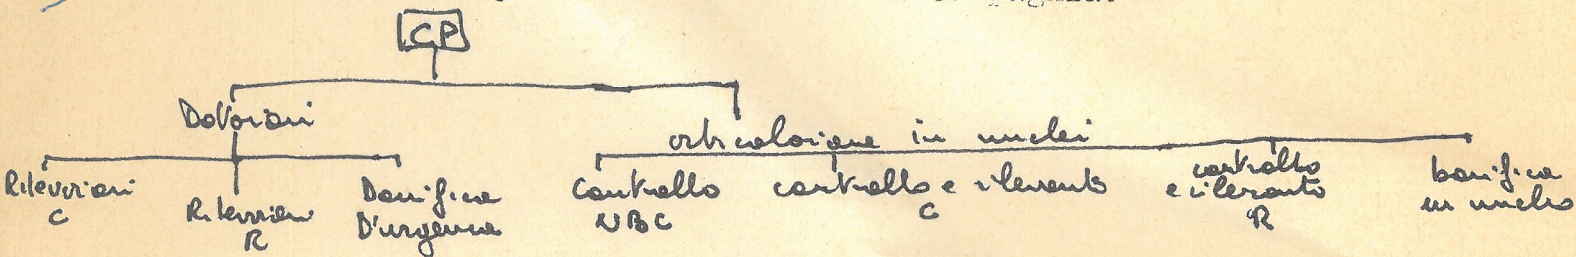 CP
Dotazioni
articolazione in nuclei
Rilevazioni
C
Rilevazioni
R
Bonifica
D'urgenza
Controllo
NBC
controllo e rilevanto
C
controllo
e rilevanto
R
bonifica
in nucleo